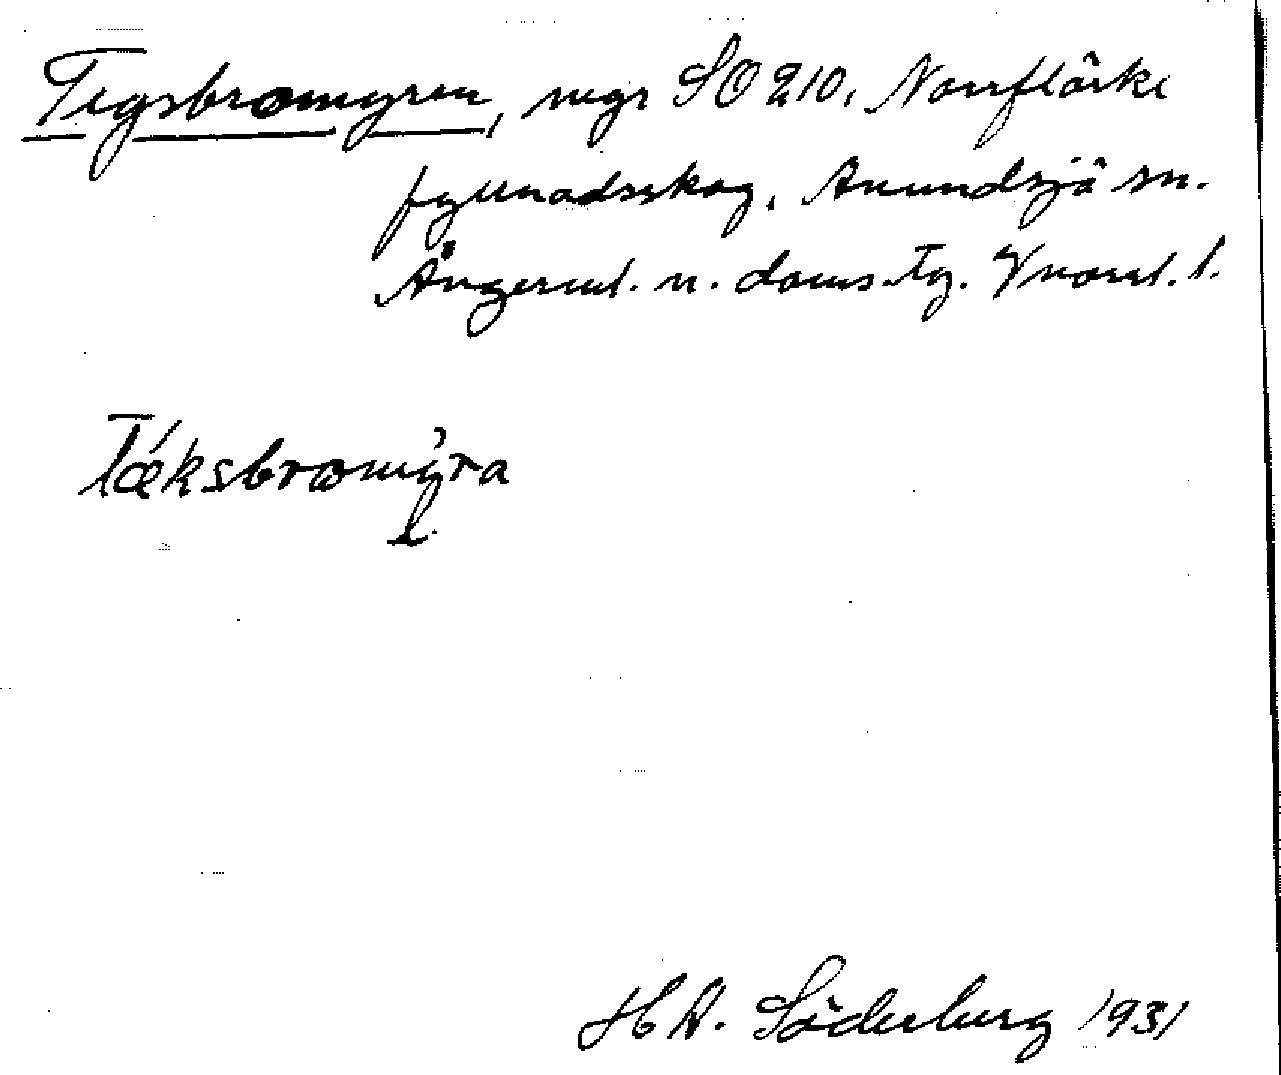 Tegsbromyren, myr SO 210, Norrflärke
fyllnadsskog, Anundsjö sn.
Ångerml. n. doms. tg. Vnorrl. l.
Tǽksbromyra
H. A. Söderberg 1931